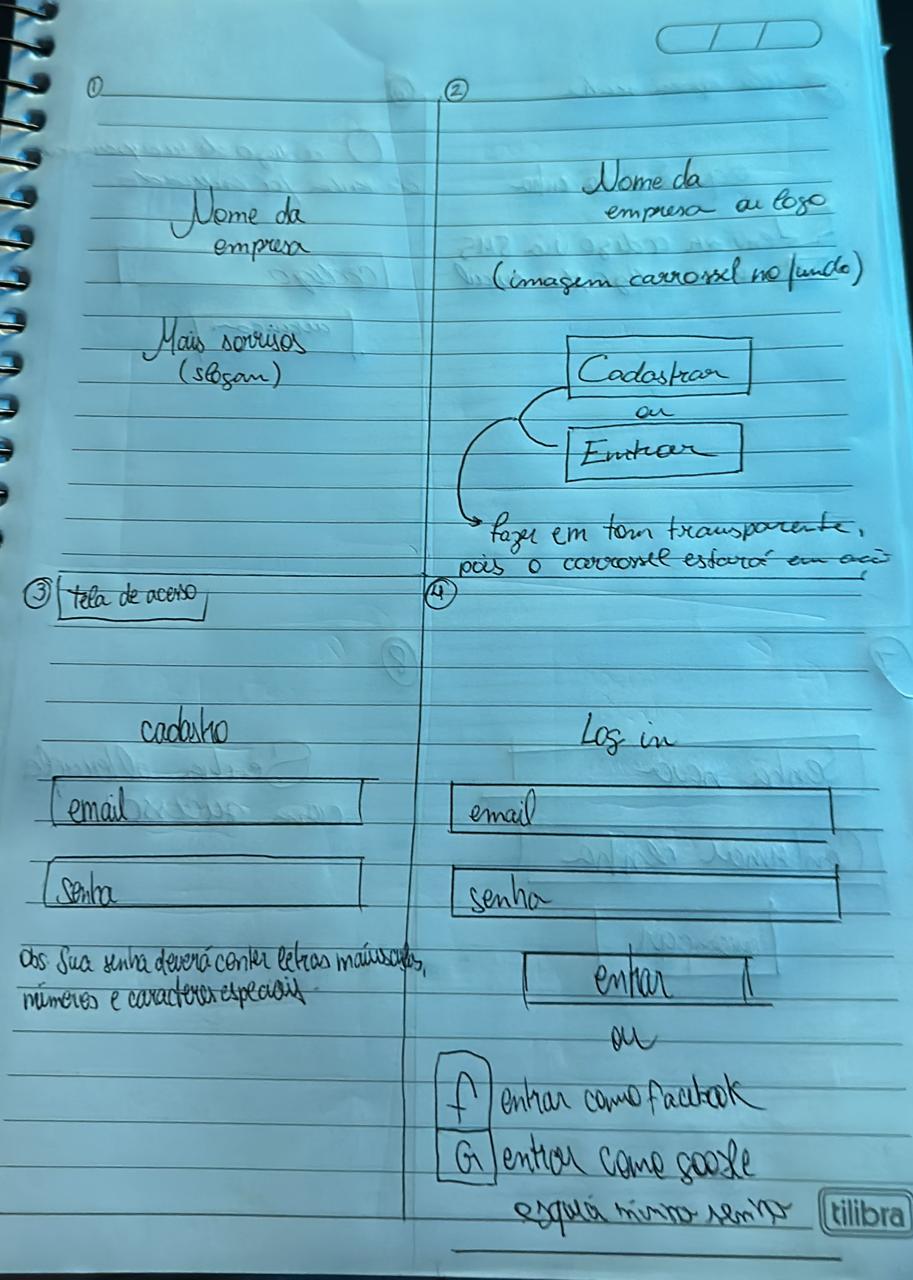 ①
Nome da
empresa
Mais sorrisos
(slogan)
②
Nome da
empresa ou logo
(imagem carrossel no fundo)
Cadastrar
ou
Entrar
fazer em tom transparente,
pois o carrossel estará em ação
③ tela de acesso
cadastro
email
senha
Obs: Sua senha deverá conter letras maiúsculas,
números e caracteres especiais.
④
Log in
email
senha
entrar
ou
f entrar como facebook
G entrar como google
esqueci minha senha
tilibra